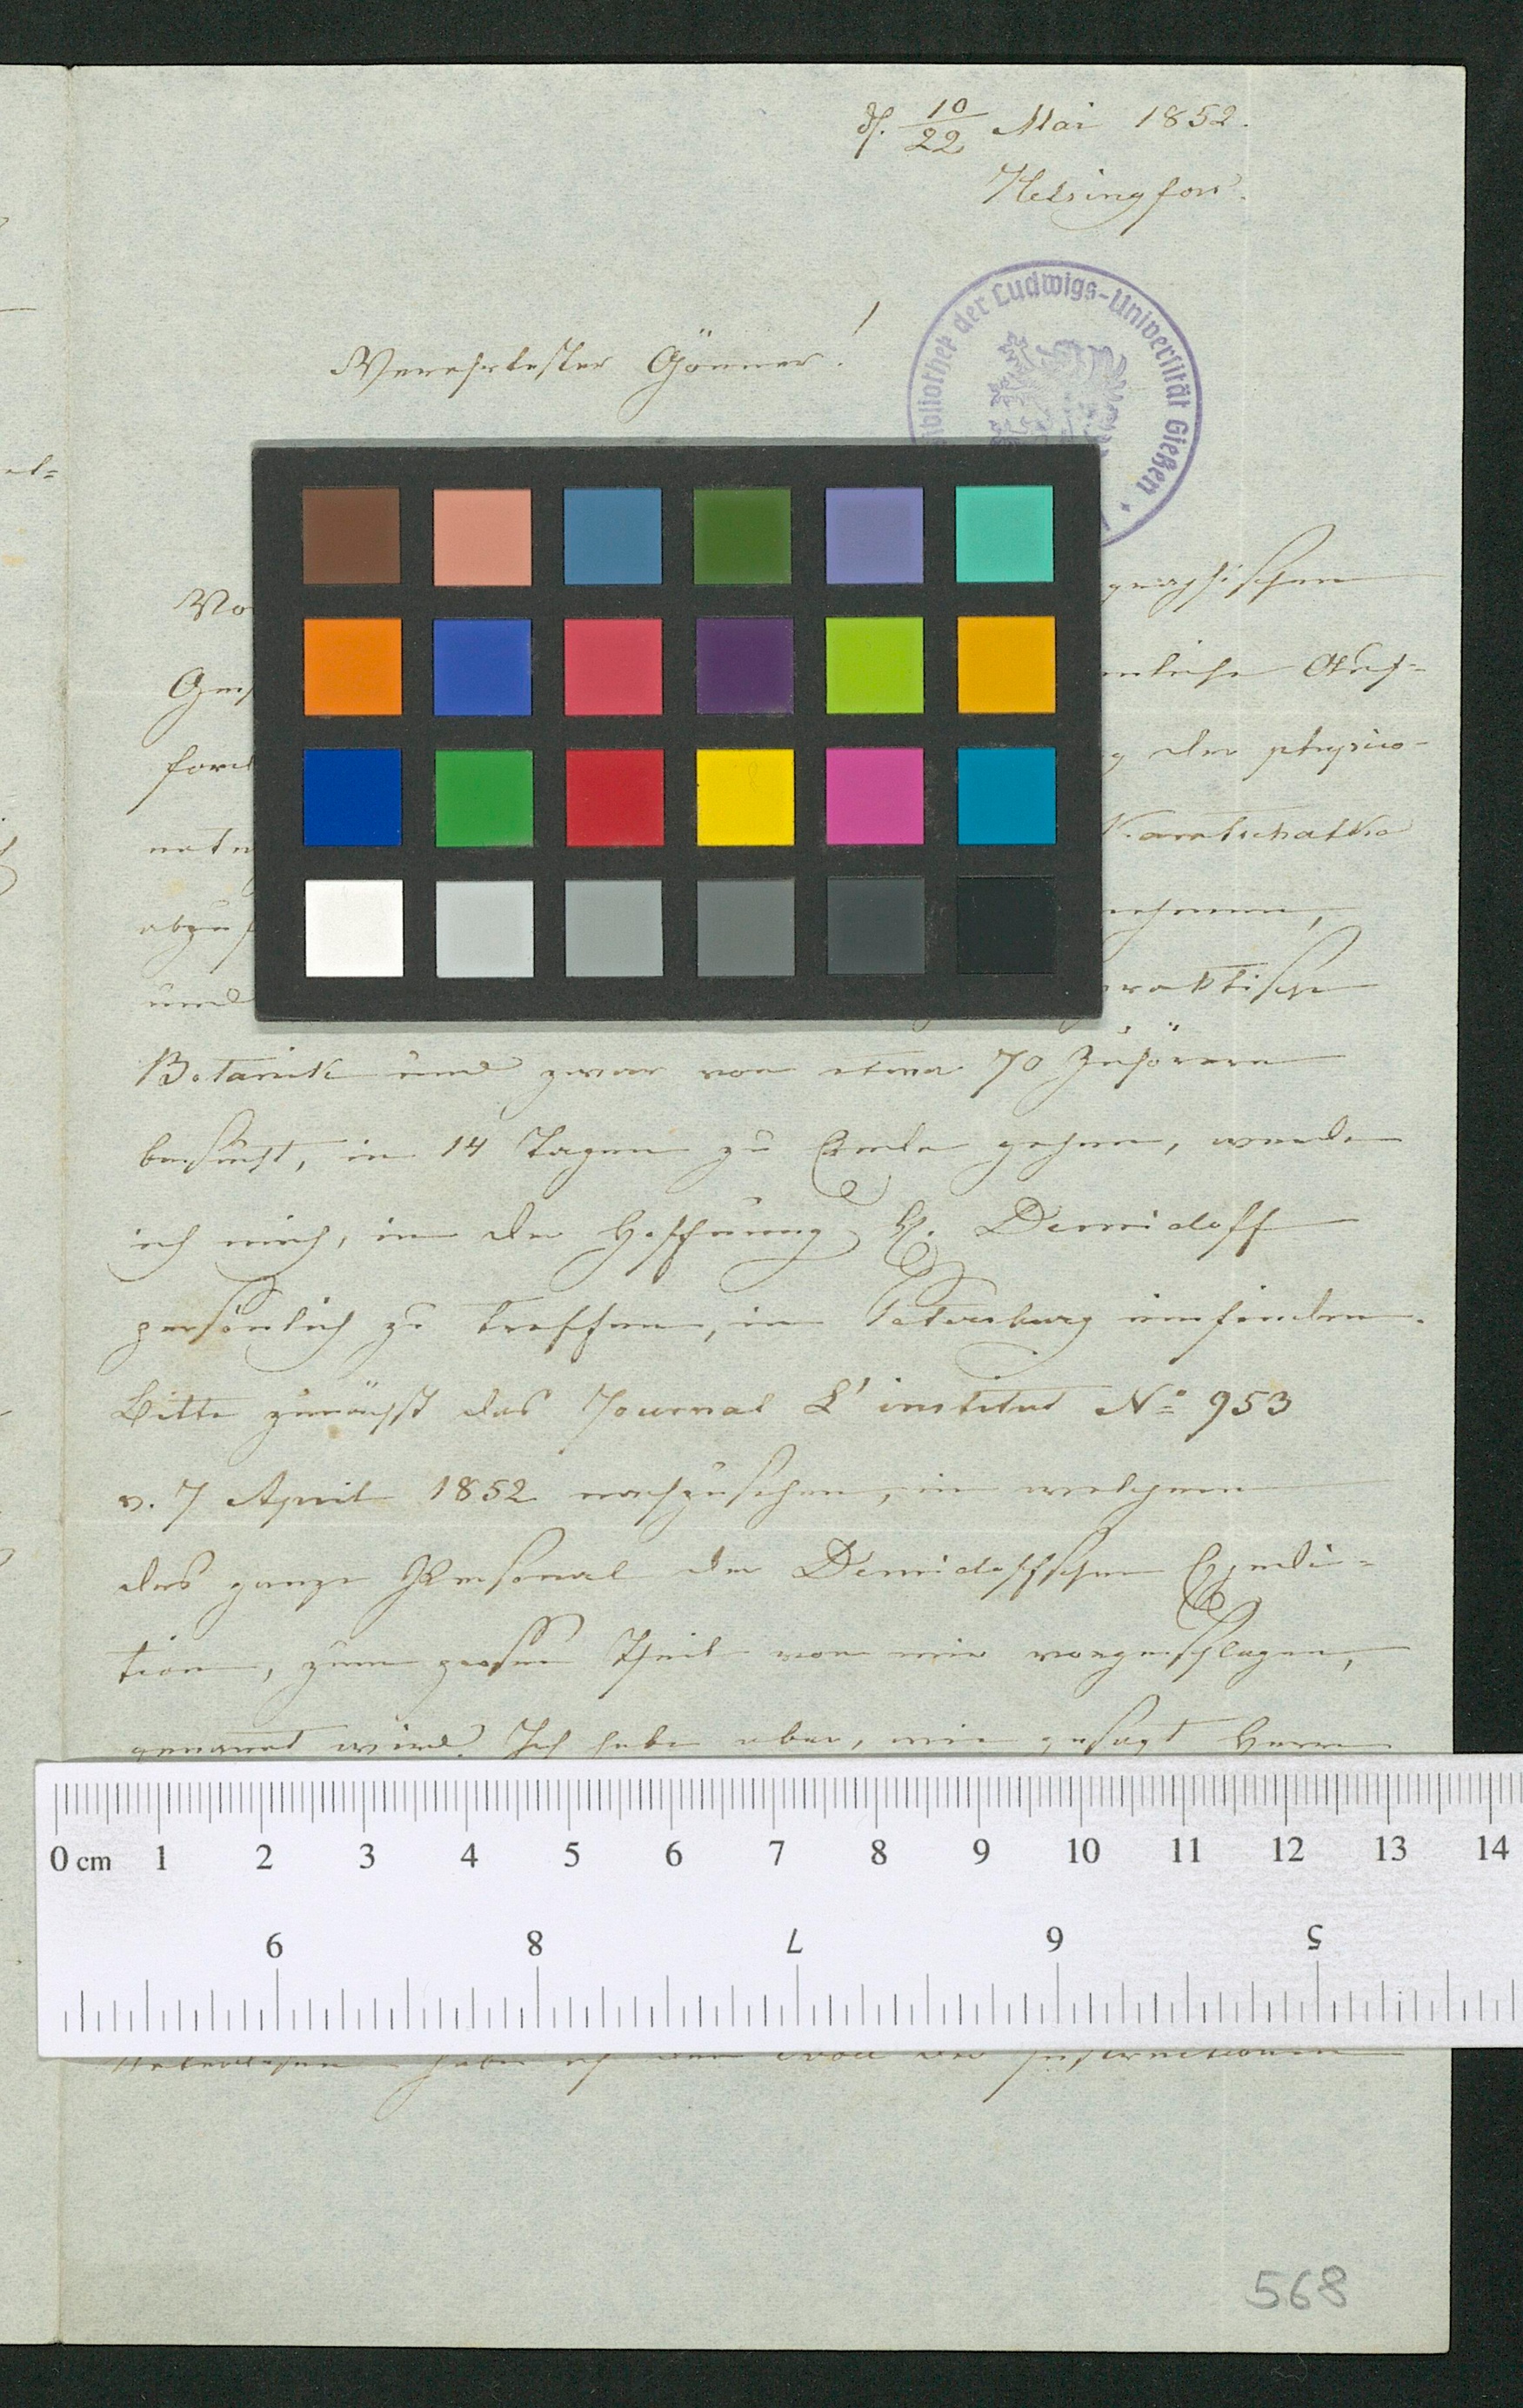 d. 10/22 Mai 1852.
Helsingfors.
Bibliothek der Ludwigs-Universität Gießen
Verehrtester Gönner!
graphischen
Auf-
der physico-
Kamtschatka
und praktische
Botanik und zwar von etwa 70 Zuhörern
besucht, in 14 Tagen zu Ende gehen, werde
ich mich, in der Hoffnung H. Demidoff
persönlich zu treffen, in Petersburg einfinden.
Bitte zunächst das Journal L'institut No 953
v. 7 April 1852 nachzusehen, in welchem
das ganze Personal der Demidoffschen Expedi-
tion, zum grossen Theil von mir vorgeschlagen,
genannt wird. Ich habe aber, wie gesagt Herrn
0 cm 1 2 3 4 5 6 7 8 9 10 11 12 13 14
9 8 7 6 5
habe ich den der Instructionen
568